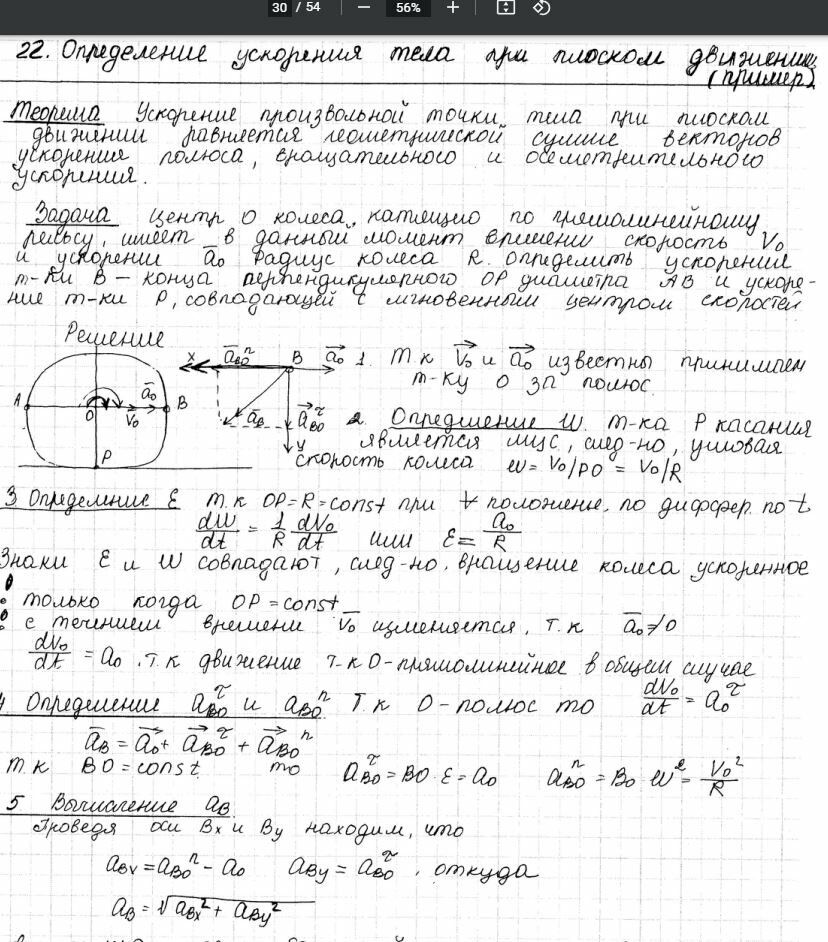 30 / 54 — 56% +
22. Определение ускорения тела при плоском движении
(пример)
Теорема Ускорение произвольной точки тела при плоском
движении равняется геометрической сумме векторов
ускорения полюса, вращательного и осеметнительного
ускорения.
Задача Центр О колеса, катящ по прямолинейному
рельсу, имеет в данный момент времени скорость V₀
и ускорении a̅₀ Радиус колеса R. определить ускорения
т-ки В – конца перпендикулярного OP диаметра AB и ускоре-
ние т-ки P, совпадающей с мгновенным центром скоростей
Решение
x a̅ᴮᴼⁿ B a̅₀
A O V₀ a̅₀ B
a̅ᴮ a̅ᴮᴼᵗ
y
P
1. т.к V̅₀ и a̅₀ известны принимаем
т-ку О за полюс.
2. Определение W. т-ка P касания
является МЦС, след-но, угловая
скорость колеса w = V₀/PO = V₀/R
3 Определение ε т.к OP=R=const при ∀ положение, по диффер. по t
dW/dt = 1/R dV₀/dt или ε = a₀/R
Знаки ε и W совпадают, след-но, вращение колеса ускоренное
только когда OP = const
с течением времени V̅₀ изменяется, т.к a̅₀≠0
dV₀/dt = a₀, т.к движение т-к О-прямолинейное в общем случае
4 Определение a_BO^τ и a_BO^n Т.к О-полюс то dV₀/dt = a₀^τ
a̅_B = a̅₀ + a̅_BO^τ + a̅_BO^n
т.к BO = const то a_BO^τ = BO·ε = a₀ a_BO^n = BO w² = V₀²/R
5 Вычисление a_B
Проведя оси Bx и By находим, что
a_Bx = a_BO^n - a₀ a_By = a_BO^τ, откуда
a_B = √(a_Bx² + a_By²)